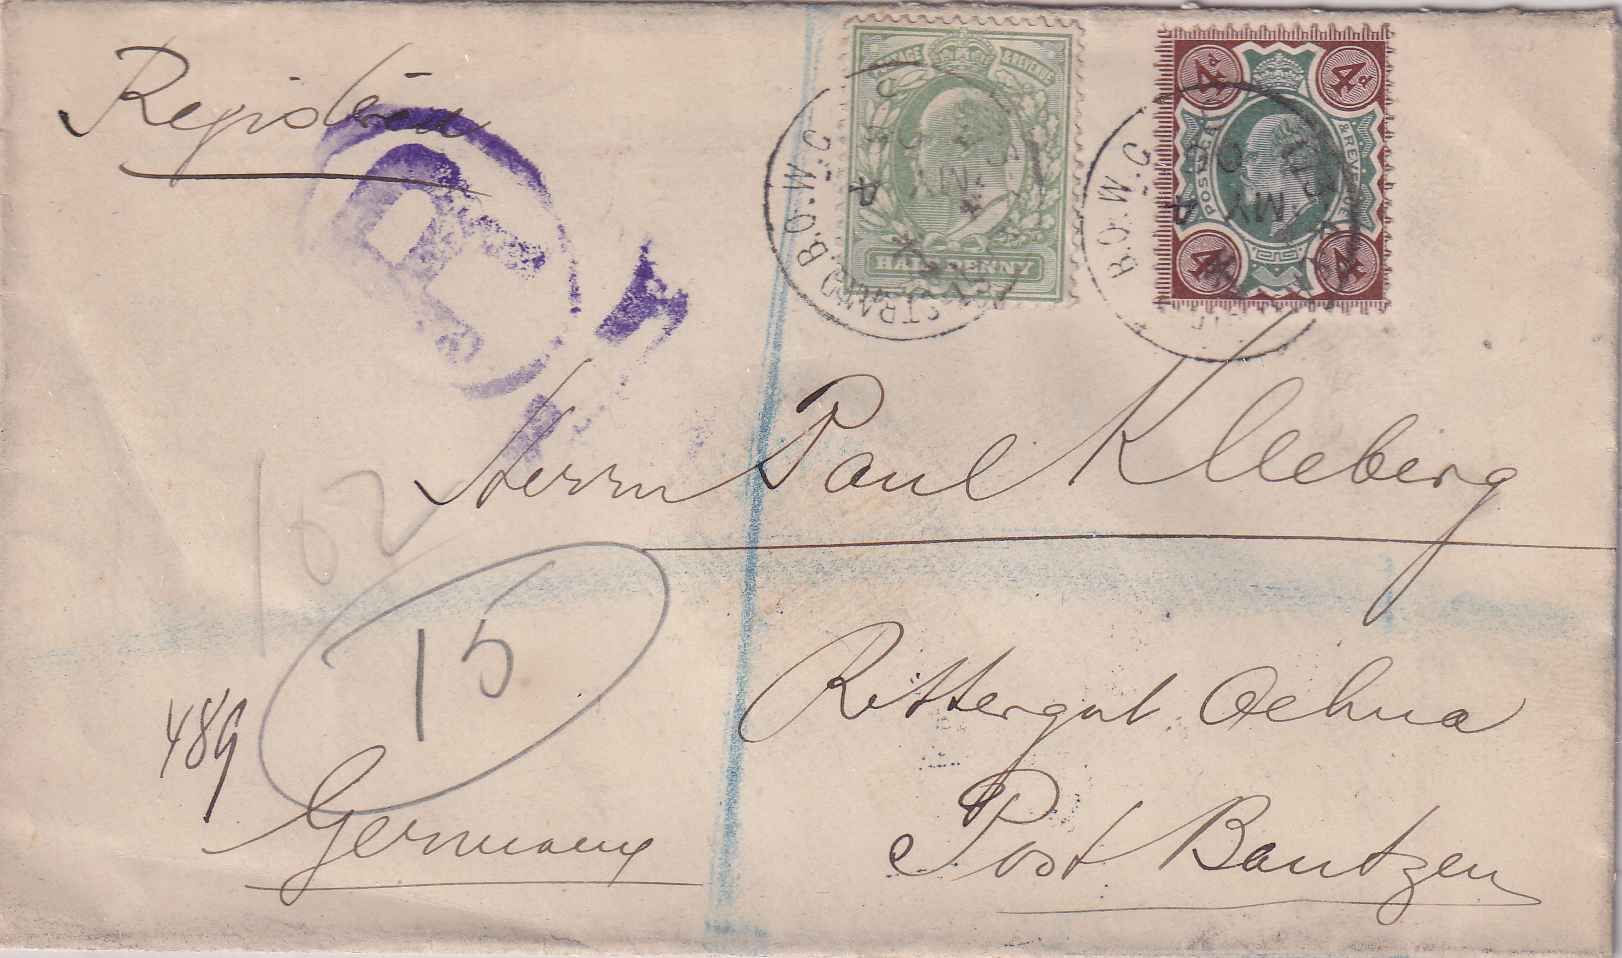 Registered
R
POSTAGE & REVENUE
HALFPENNY
STRAND B.O. W.C.
4d 4d
POSTAGE & REVENUE
4d 4d
B.O. W.C.
MY
Herrn Paul Kleeberg
102
15
Rittergut Oehna
489
Germany
Post Bautzen